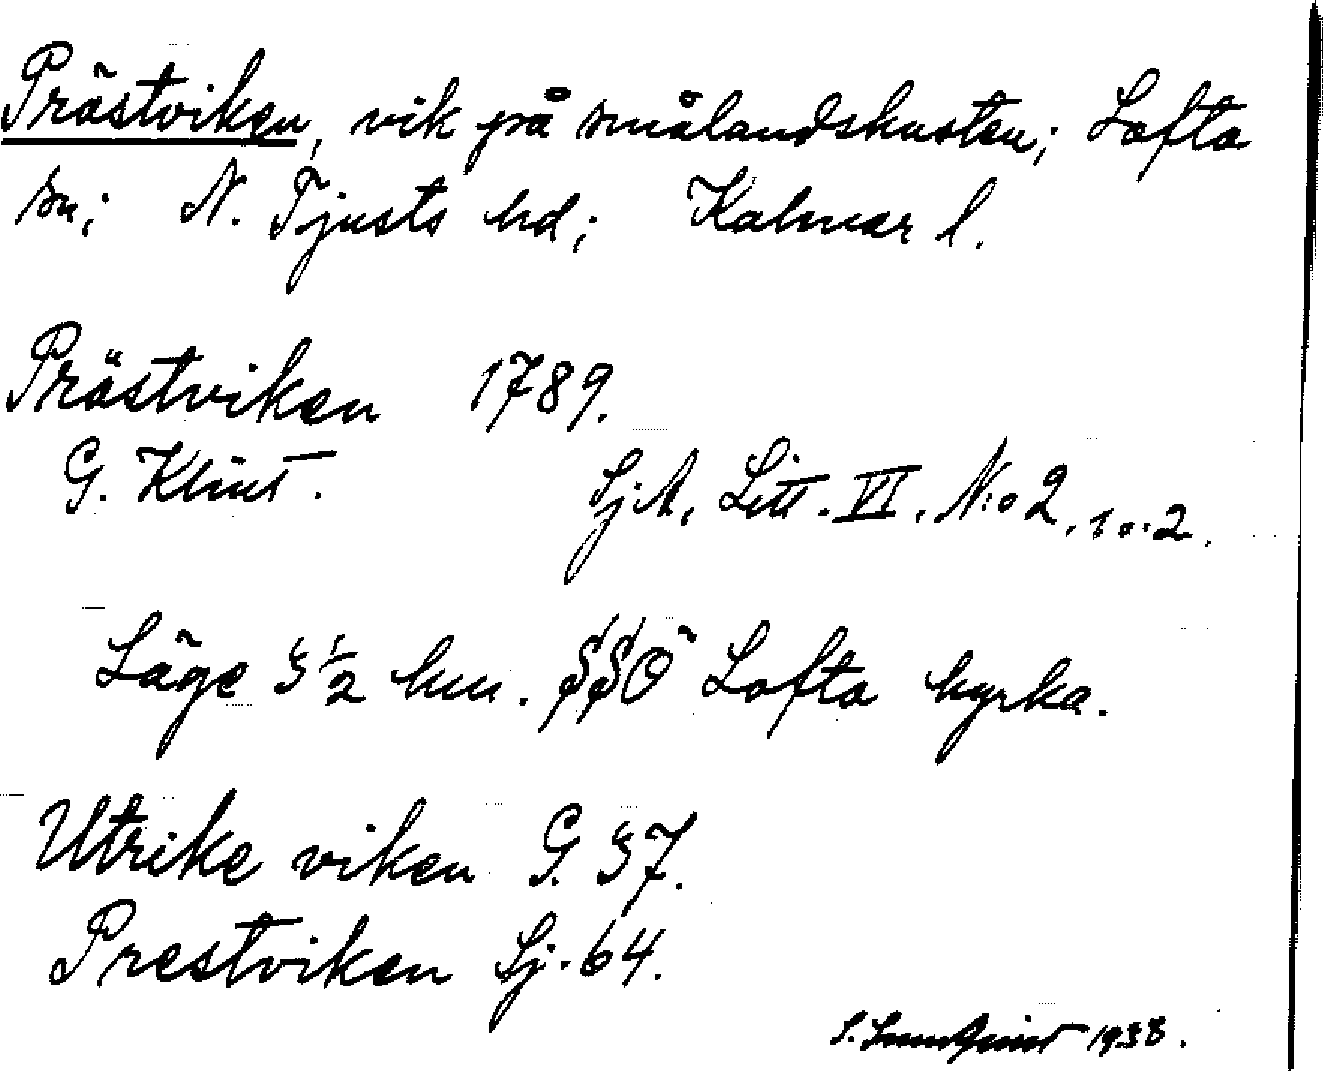 Prästviken, vik på smålandskusten; Lofta
sn; N. Tjusts hd; Kalmar l.
Prästviken 1789.
G. Klint. Sj.A, Litt. VI. N:o 2, 1 o. 2.
Läge 3 1/2 km. SSÖ Lofta kyrka.
Utrike viken G. 37.
Prestviken Sj. 64.
S. 1938.